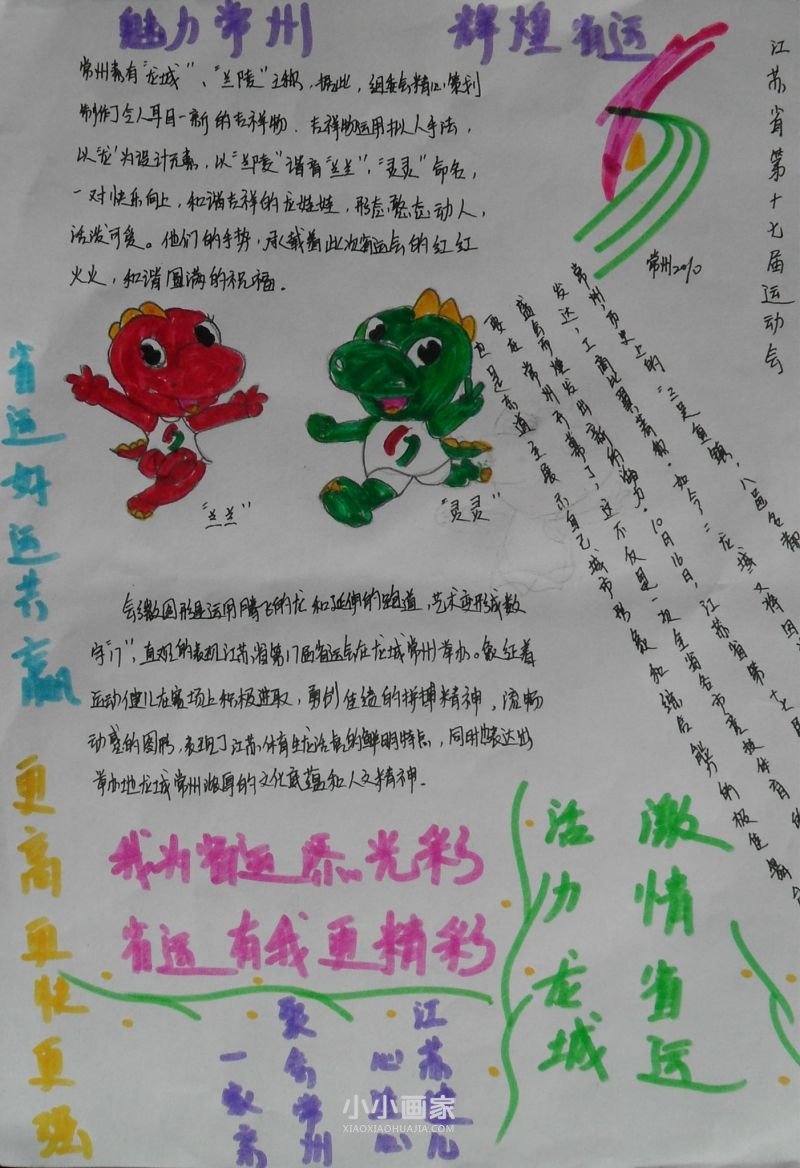 魅力常州 辉煌省运
常州素有"龙城"、"兰陵"之称，据此，组委会精心策划
制作了令人耳目一新的吉祥物。吉祥物运用拟人手法，
以"龙"为设计元素，以"兰陵"谐音"兰兰"、"灵灵"命名，
一对快乐向上，和谐吉祥的龙娃娃，形态憨态动人，
活泼可爱。他们的手势，承载着此次省运会的红红
火火，和谐圆满的祝福。
江苏省第十七届运动会
常州2010
"兰兰"
"灵灵"
常州历史上的"三吴重镇，八邑名都
发达，工商比翼
盛名而焕发出新的魅力。10月16日，江苏省第十七
要在常州开幕了，这不仅是一次全省各市竞技体育的
也是东道主展示自己城市形象和综合能力的极佳
会徽图形是运用腾飞的龙和延伸的跑道，艺术变形成数
字"17"，直观的表现江苏省第17届省运会在龙城常州举办。象征着
运动健儿在赛场上积极进取，勇创佳绩的拼搏精神。流畅
动感的图形，表现了江苏体育生龙活虎的鲜明特点，同时也表达出
举办地龙城常州浓厚的文化底蕴和人文精神。
省运好运共赢
更高更快更强
我为省运添光彩
省运有我更精彩
激情省运
活力龙城
江苏健儿
心连心
聚会常州
一家亲
小小画家
XIAOXIAOHUAJIA.COM